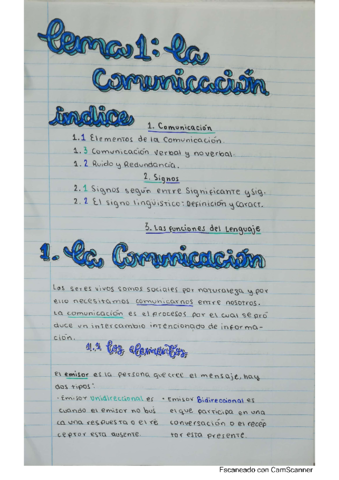 Tema 1: la
Comunicación
índice
1. Comunicación
1.1 Elementos de la Comunicación.
1.3 Comunicación verbal y no verbal.
1.2 Ruido y Redundancia.
2. Signos
2.1 Signos según entre Significante y Sig.
2.2 El signo lingüístico: Definición y Caract.
3. Las funciones del Lenguaje
1. La Comunicación
Los seres vivos somos sociales por naturaleza y por
ello necesitamos comunicarnos entre nosotros.
La comunicación es el procesos por el cual se pro
duce un intercambio intencionado de informa-
ción.
1.1 los elementos
El emisor es la persona que cree el mensaje, hay
dos tipos:
· Emisor Unidireccional es
cuando el emisor no bus
ca una respuesta o el re
ceptor esta ausente.
· Emisor Bidireccional es
el que participa en una
conversación o el recep
tor esta presente.
Escaneado con CamScanner